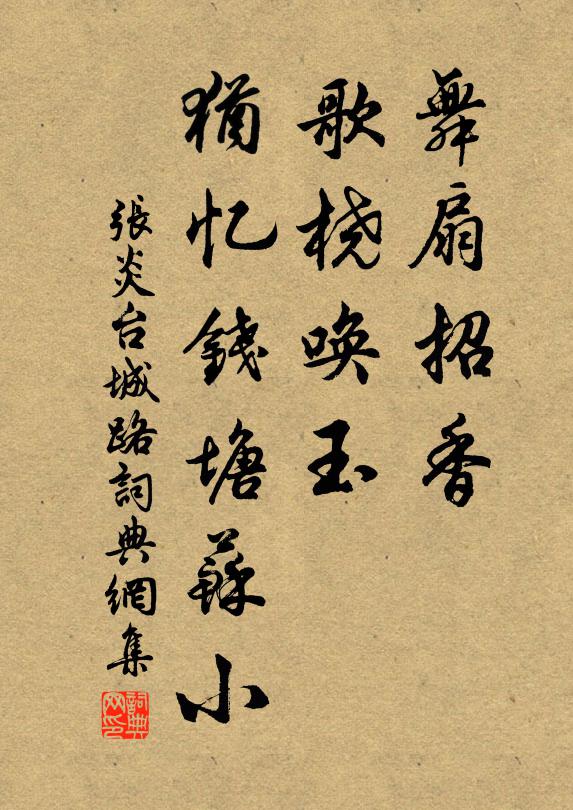 舞扇招香
歌桡唤玉
犹忆錢塘蘇小
張炎台城路詞典網集
詞典网印